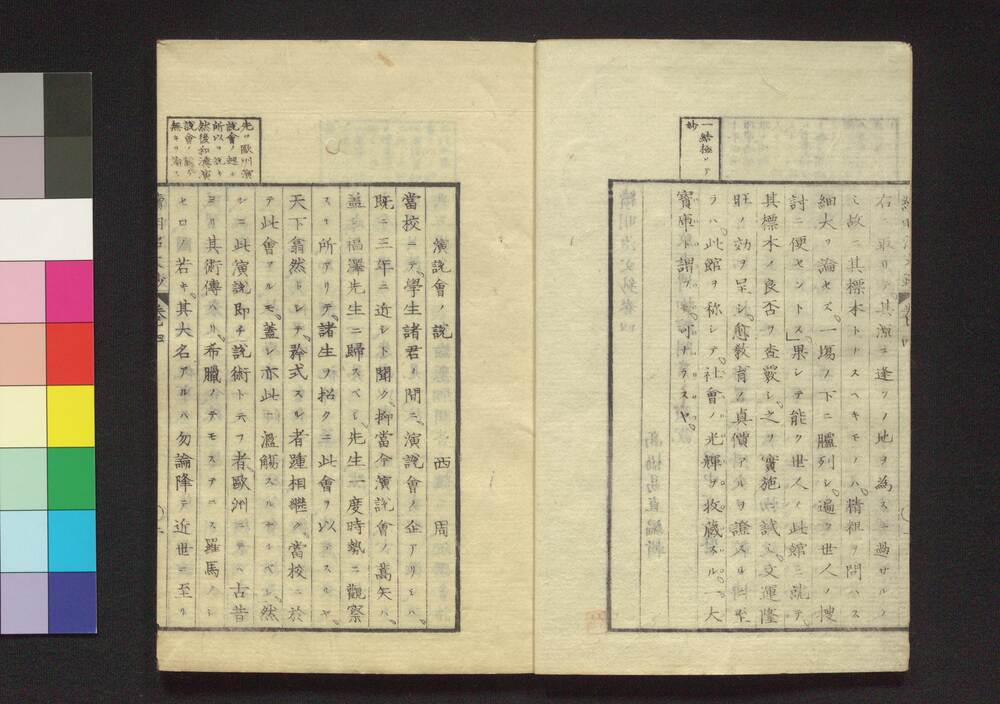 一結極メテ
妙
右ニ取リテ其源ニ逢フノ地ヲ為スニ過サルノ
ミ故ニ其標本トナスヘキモノハ精粗ヲ問ハス
細大ヲ論セズ一場ノ下ニ臚列シ遍ク世人ノ捜
討ニ便セントス」果シテ能ク世人ノ此館ニ就テ
其標本ノ良否ヲ査覈シ之ヲ實施ニ試ミ文運隆
旺ノ効ヲ呈シ愈教育ノ真價アルヲ證スルニ至
ラハ此館ヲ称シテ社會ノ光輝ヲ收蔵スル一大
寳庫ト謂フ可ナラスヤ
先ツ歐州演
説會ノ起ル
所以ヲ説キ
然後和漢演
説會ノ
無キヲ
演説會ノ説
西周
當校ニテ學生諸君ノ間ニ演説會ノ企アリシハ
既ニ三年ニ近シト聞ク抑當今演説會ノ嵩矢ハ
盖シ福澤先生ニ歸スベシ先生一度時勢ニ觀察
スル所アリテ諸生ヲ招クニ此會ヲ以テスルヤ
天下翕然トシテ矜式スル者踵相繼ク當校ニ於
テ此會アルモ蓋シ亦此ニ濫觴スルナルベシ然
シニ此演説即チ説術ト云フ者歐洲ニテハ古昔
ヨリ其術傳ハリ希臘ノデモステニス羅馬ノシ
セロ若キ其大名アルハ勿論降テ近世ニ至リ